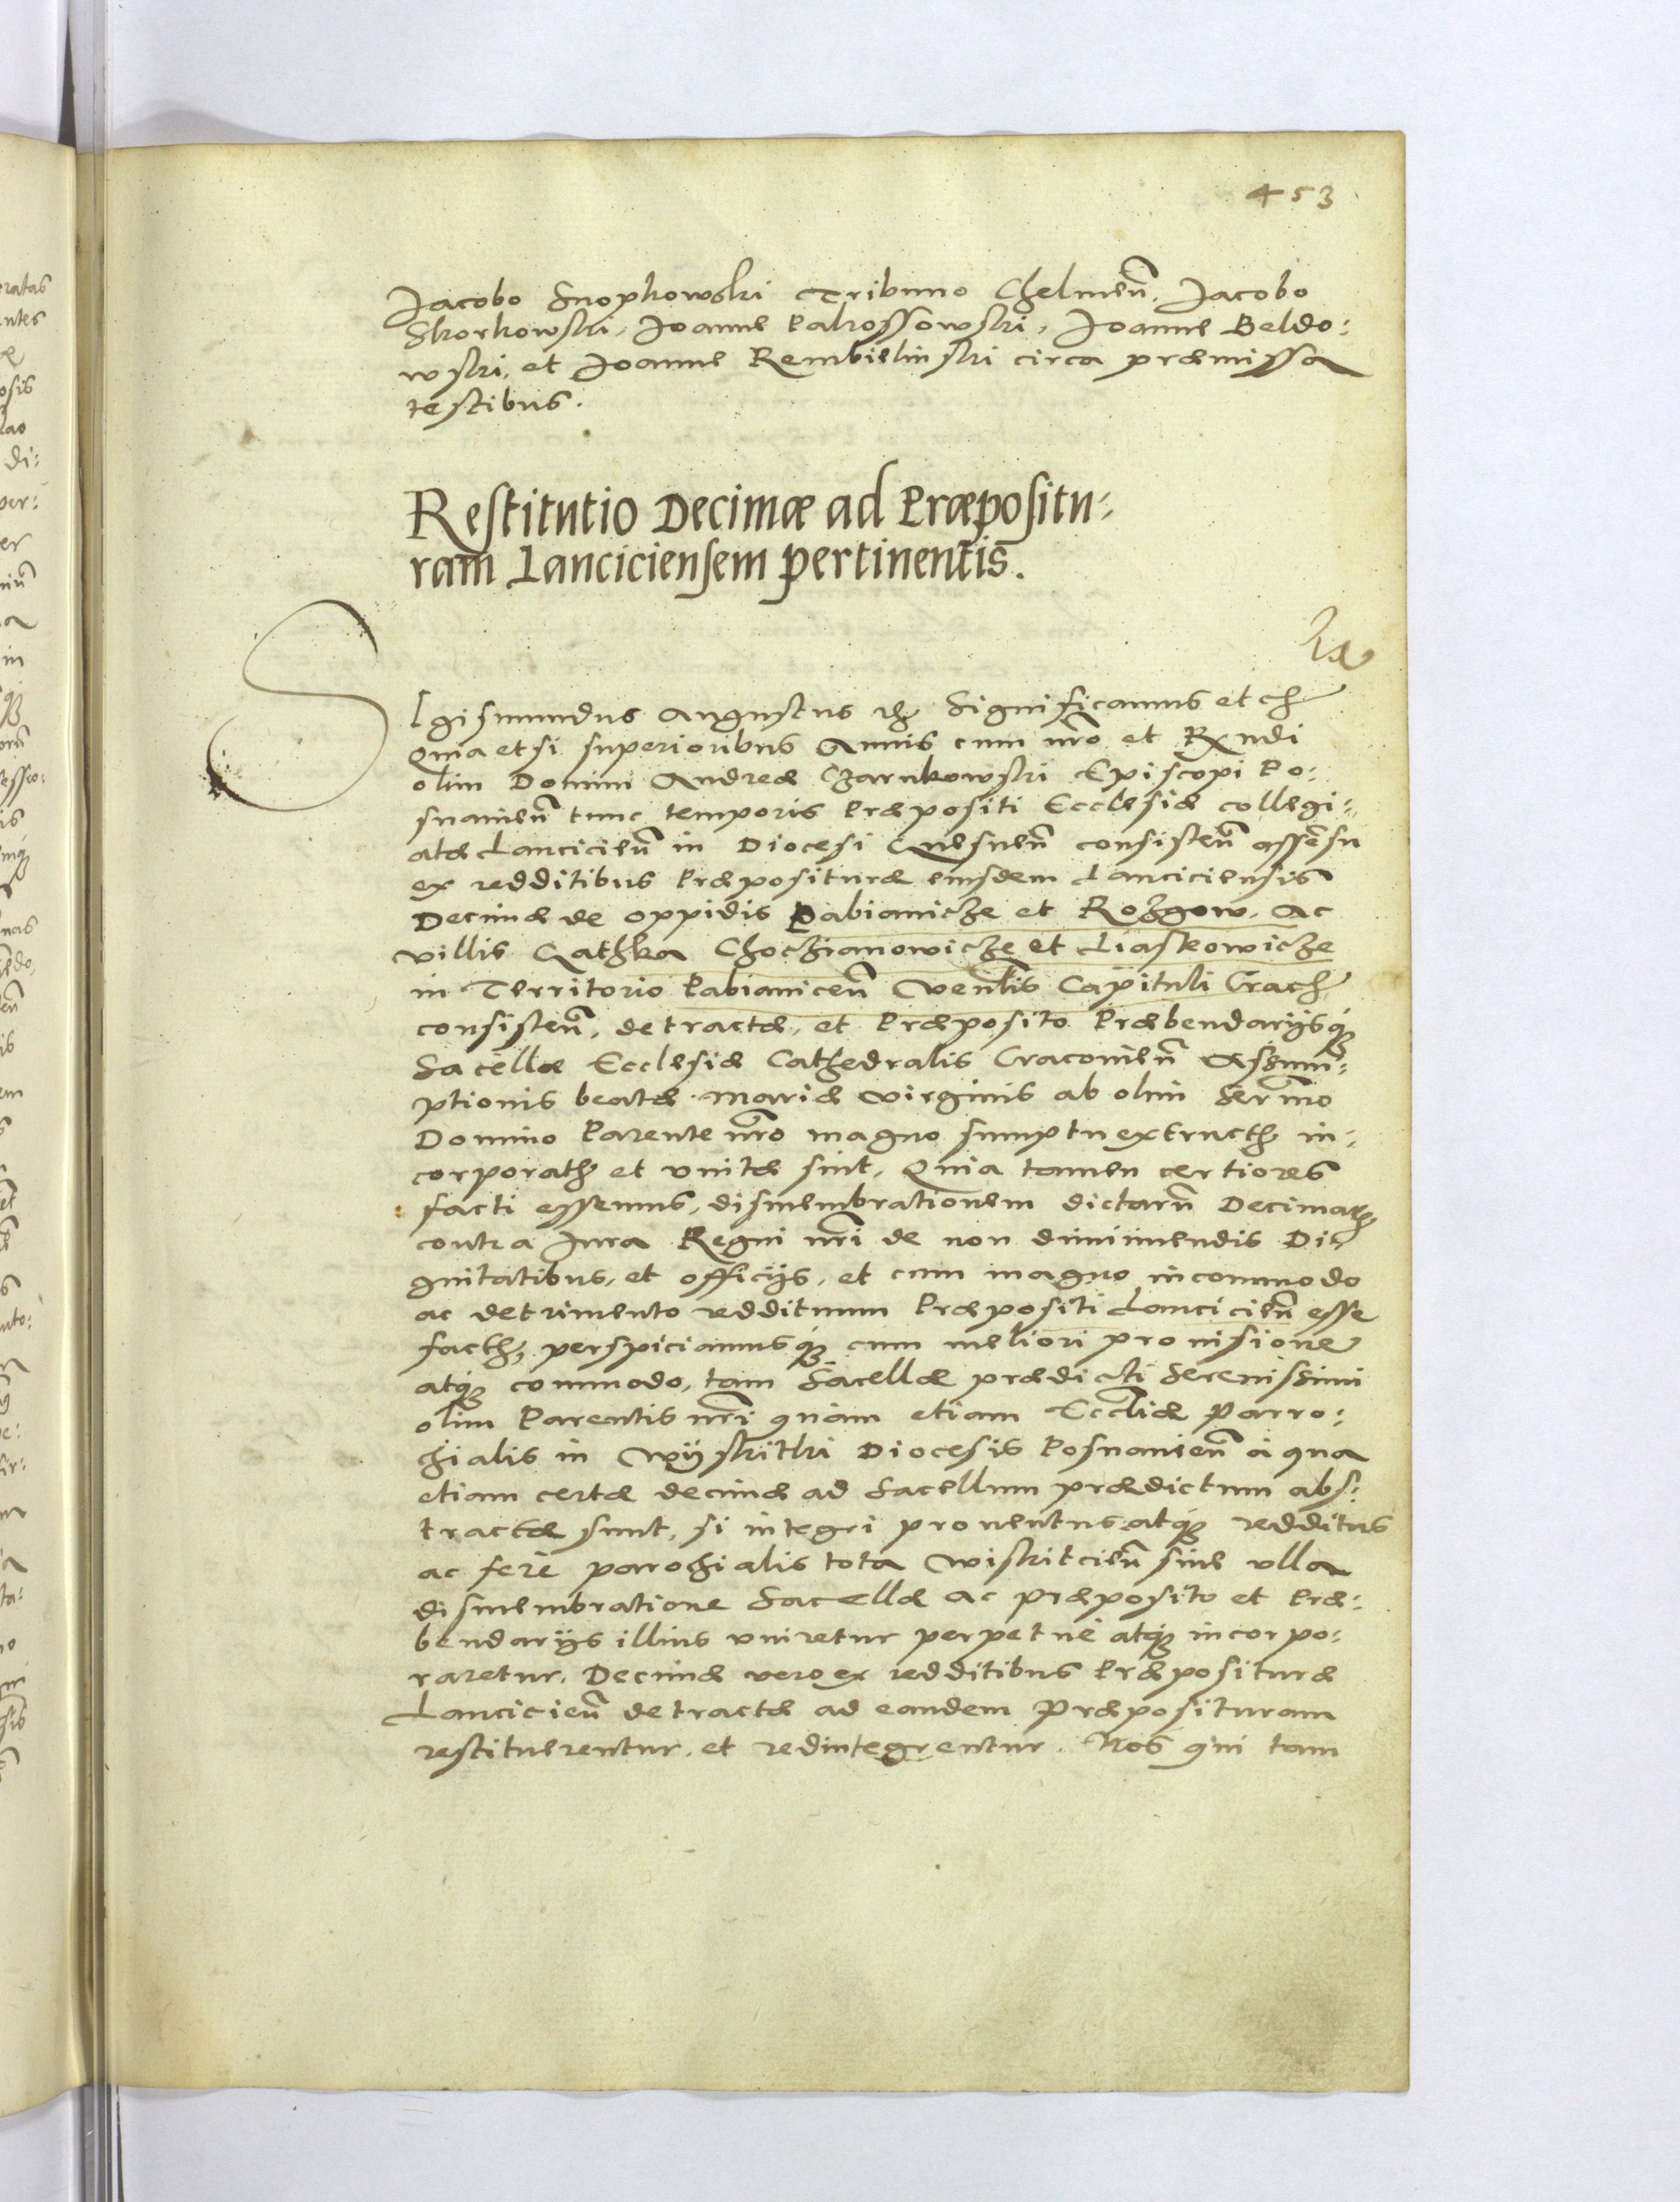 453
Jacobo Snopkowski Tribuno Chelmen̄, Jacobo
Skorkowski, Joanne Pakossowski, Joanne Beldo:
wski, et Joanne Rembielinski circa præmissa
testibus.
Restitutio Decimæ ad Præpositu:
ram Lanciciensem pertinentis.
SIgismundus Augustus Significamus etc
Quia etsi superioribus Annis cum nr̄o et Rx̄ndi
olim Domini Andreæ Czarnkowski Episcopi Po:
snanien̄ tunc temporis Præpositi Ecclesiæ collegi:
atæ Lancicien̄ in Diocesi Gnesnen̄ consisten̄ assēsu
ex redditibus Præposituræ eiusdem Lanciciensis
Decimæ de oppidis Pabianicze et Rozgow, Ac
villis Gathka Choczianowicze et Liaskowicze
in Territorio Pabianicen̄ Venlis Capituli Crach
consisten̄, detractæ, et Præposito Præbendarijsq́ꝫ
Sacellæ Ecclesiæ Cathedralis Cracouien̄ Assum:
ptionis beatæ Mariæ Virginis ab olim Serm̄o
Domino Parente nr̄o magno sumptu extructꝫ in:
corporatꝫ et vnitæ sint, Quia tamen certiores
facti essemus, dismembrationem dictarū Decimarꝫ
contra Jura Regni nr̄i de non diminuendis Di:
gnitatibus, et officijs, et cum magno incommodo
ac detrimento reddituum Præpositi Lancicien̄ esse
factꝫ, perspiciamusq́ꝫ cum meliori prouisione
atq́ꝫ commodo, tam Sacellæ prædicti Serenissimi
olim Parentis nr̄i quàm etiam Eccliæ Parro:
chialis in Wyskithki Diocesis Posnanien̄ à qua
etiam certæ decimæ ad Sacellum prædictum abs:
tractæ sunt, si integri prouentus atq́ꝫ redditus
ac ferè parochialis tota Wiskitcien̄ sine vlla
dismembratione Sacellæ ac Præposito et Præ:
bendarijs illius vniretur perpetuè atq́ꝫ incorpo:
raretur. Decimæ vero ex redditibus Præposituræ
Lancicien̄ detractæ ad eandem Præposituram
restituerentur, et redintegrentur. Nos qui tam